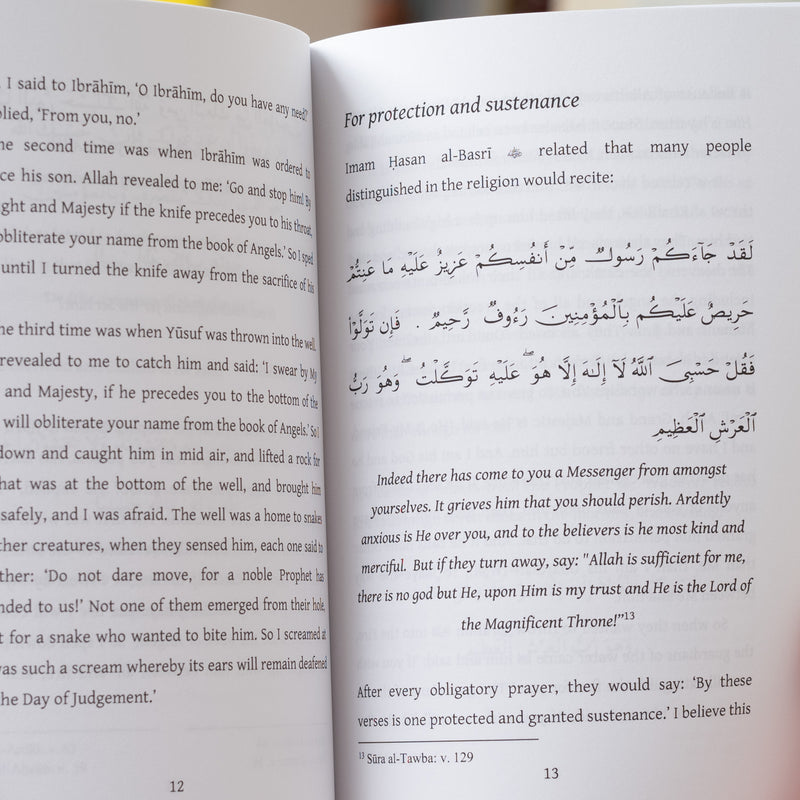 I said to Ibrāhīm, ‘O Ibrāhīm, do you have any need?
plied, ‘From you, no.’
he second time was when Ibrāhīm was ordered to
ce his son. Allah revealed to me: ‘Go and stop him! By
ght and Majesty if the knife precedes you to his throat,
obliterate your name from the book of Angels.’ So I sped
until I turned the knife away from the sacrifice of his
he third time was when Yūsuf was thrown into the well.
revealed to me to catch him and said: ‘I swear by My
and Majesty, if he precedes you to the bottom of the
will obliterate your name from the book of Angels.’ So I
down and caught him in mid air, and lifted a rock for
hat was at the bottom of the well, and brought him
safely, and I was afraid. The well was a home to snakes
ther creatures, when they sensed him, each one said to
ther: ‘Do not dare move, for a noble Prophet has
nded to us!’ Not one of them emerged from their hole,
t for a snake who wanted to bite him. So I screamed at
was such a scream whereby its ears will remain deafened
he Day of Judgement.’
12
For protection and sustenance
Imam Ḥasan al-Basrī related that many people
distinguished in the religion would recite:
لَقَدْ جَآءَكُمْ رَسُولٌ مِّنْ أَنفُسِكُمْ عَزِيزٌ عَلَيْهِ مَا عَنِتُّمْ
حَرِيصٌ عَلَيْكُم بِٱلْمُؤْمِنِينَ رَءُوفٌ رَّحِيمٌ . فَإِن تَوَلَّوْا۟
فَقُلْ حَسْبِىَ ٱللَّهُ لَآ إِلَـٰهَ إِلَّا هُوَ ۖ عَلَيْهِ تَوَكَّلْتُ ۖ وَهُوَ رَبُّ
ٱلْعَرْشِ ٱلْعَظِيمِ
Indeed there has come to you a Messenger from amongst
yourselves. It grieves him that you should perish. Ardently
anxious is He over you, and to the believers is he most kind and
merciful. But if they turn away, say: "Allah is sufficient for me,
there is no god but He, upon Him is my trust and He is the Lord of
the Magnificent Throne!”13
After every obligatory prayer, they would say: ‘By these
verses is one protected and granted sustenance.’ I believe this
13 Sūra al-Tawba: v. 129
13